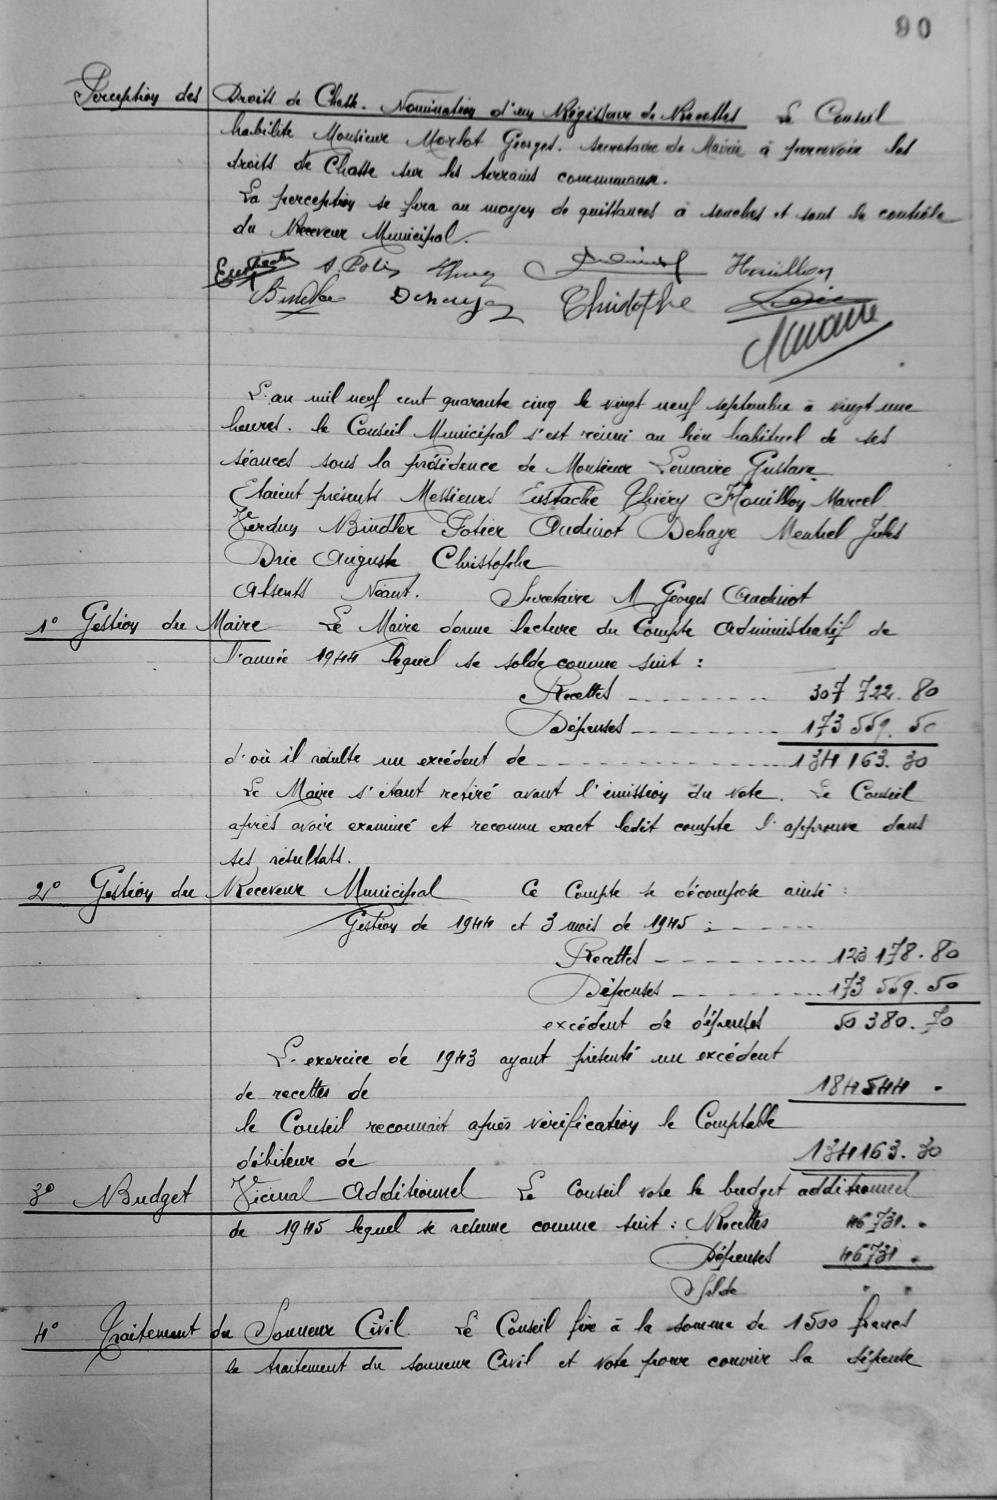 90
Perception des Droits de Chasse. Nomination d'un Régisseur de Recettes Le Conseil
habilite Monsieur Morlot Georges. secretaire de Mairie à percevoir les
droits de Chasse sur les terrains communaux.
La perception se fera au moyen de quittances à souches et sous le contrôle
du Receveur Municipal.
Eustache A. Potier Thiery Audinot Houillon
Bindler Dehaye Christophe Drie
Lemaire
L'an mil neuf cent quarante cinq le vingt neuf septembre à vingt une
heures. le Conseil Municipal s'est réuni au lieu habituel de ses
séances sous la présidence de Monsieur Lemaire Gustave
Etaient présents Messieurs Eustache Thiéry Houillon Marcel
Verdun Bindler Potier Audinot Dehaye Mentrel Jules
Drie Auguste Christophe
Absents Néant. Secretaire M Georges Audinot
1° Gestion du Maire Le Maire donne lecture du Compte Administratif de
l'année 1944 lequel se solde comme suit :
Recettes 307 722. 80
Dépenses 173 559. 50
d'où il résulte un excédent de 134 163. 30
Le Maire s'étant retiré avant l'émission du vote. Le Conseil
après avoir examiné et reconnu exact ledit compte l'approuve dans
ses résultats.
2° Gestion du Receveur Municipal Ce Compte se décompose ainsi :
Gestion de 1944 et 3 mois de 1945 :
Recettes 123 178. 80
Dépenses 173 559. 50
excédent de dépenses 50 380. 70
L'exercice de 1943 ayant présenté un excédent
de recettes de 184544 .
le Conseil reconnait après vérification le Comptable
débiteur de 134163. 30
3° Budget Vicinal Additionnel Le Conseil vote le budget additionnel
de 1945 lequel se résume comme suit : Recettes 46731. .
Dépenses 46731 .
Solde " "
4° Traitement du Sonneur Civil. Le Conseil fixe à la somme de 1500 francs
le traitement du sonneur Civil et vote pour couvrir la dépense